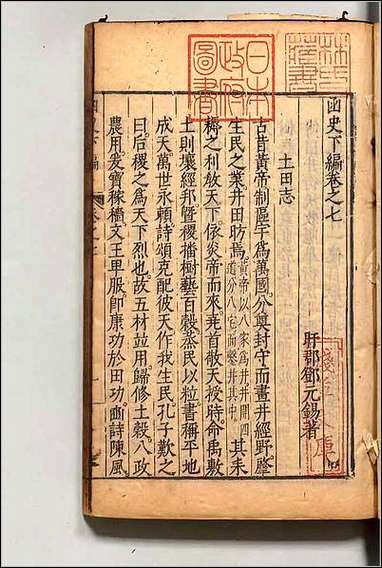 林氏
藏書
日本
政府
圖書
函史下編卷之七
盱郡鄧元錫著
淺草文庫
土田志
古昔黃帝制區宇為萬國分奠封守而畫井經野肇
生民之業井田昉焉黃帝以八家為井井開四道分八宅而鑿井其中其耒
耨之利啟天下俶炎帝而來堯首敬天授時俞禹敷
土則壤經邦暨稷播樹藝百穀烝民以粒書稱平地
成天萬世永賴詩頌克配彼天作我生民孔子歎之
曰后稷之為天下烈也故五材並用歸修土穀八政
農用爰寶稼穡文王卑服即康功於田功豳詩陳風